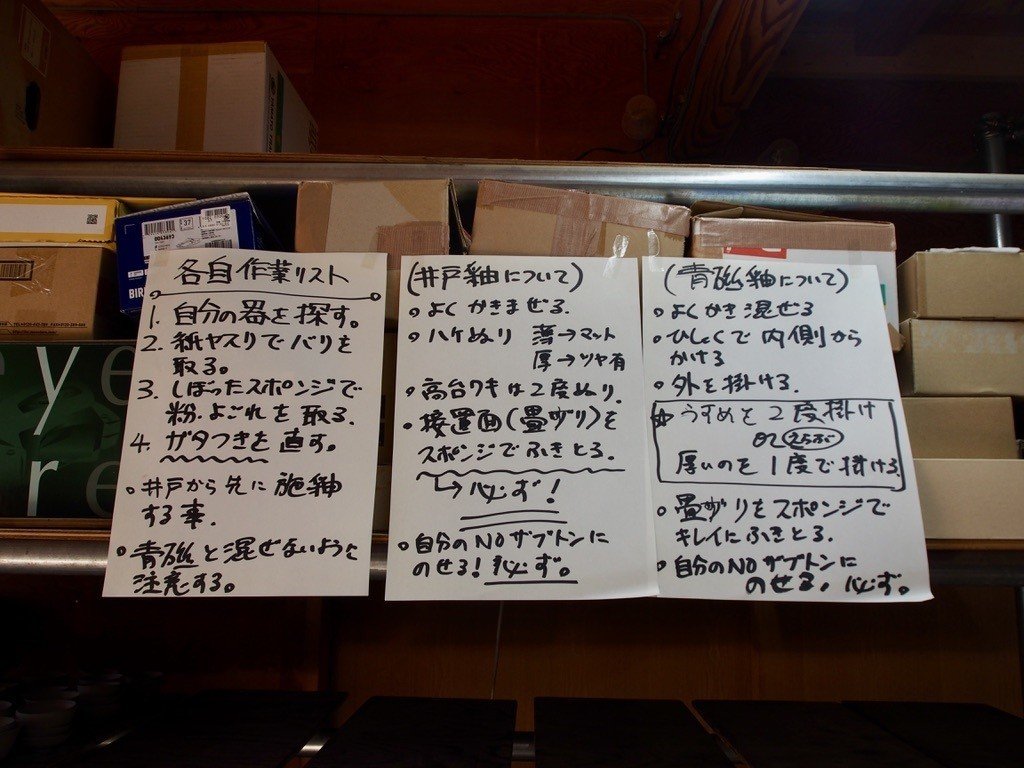 各自作業リスト
1. 自分の器を探す。
2. 紙ヤスリでバリを
取る。
3. しぼったスポンジで
粉、よごれを取る。
4. ガタつきを直す。
・井戸から先に施釉
する事。
・青磁と混ぜないように
注意する。
(井戸釉について)
・よくかきまぜる。
・ハケぬり 薄→マット
厚→ツヤ有
・高台ワキは2度ぬり。
・接置面(畳ずり)を
スポンジでふきとる。
↳必ず!
・自分のNOザブトンに
のせる!必ず。
(青磁釉について)
・よくかき混ぜる
・ひしゃくで内側から
かける
・外を掛ける。
☆うすめを2度掛け
or えらぶ
厚いのを1度で掛ける。
・畳ずりをスポンジで
キレイにふきとる。
・自分のNOザブトンに
のせる。必ず。
37
BIR
eye
re